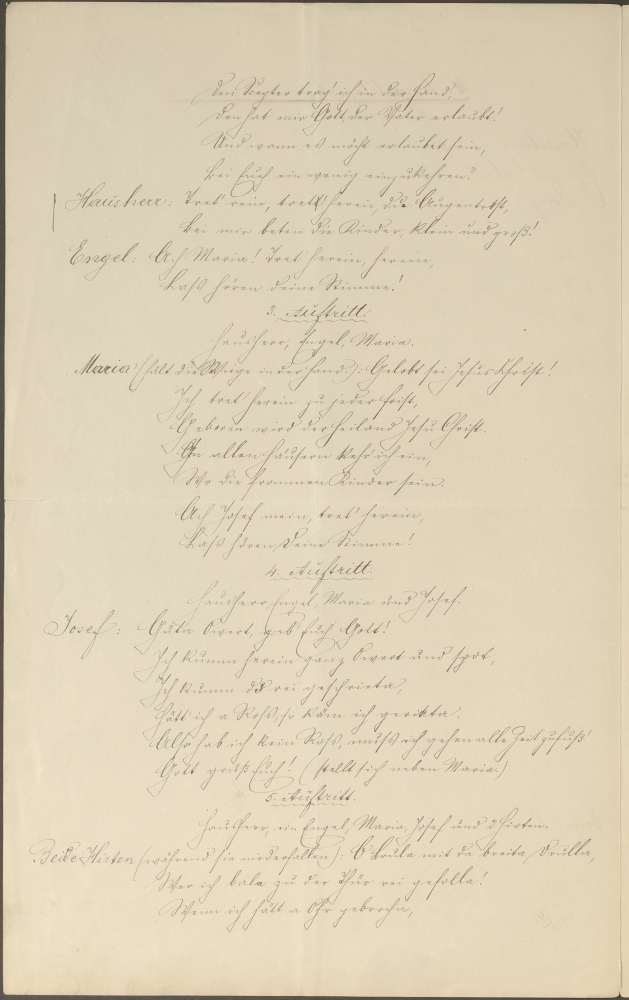 Den Scepter trag' ich in der Hand,
Den hat mir Gott der Vater erlaubt!
Und wann es möcht erlaubet sein,
Bei Euch ein wenig einzukehren?
Hausherr: Tret' rein, tret' herein, du Augentrost,
Bei mir beten die Kinder, klein und groß!
Engel: Ach Maria! Tret herein, herein,
Laß hören Deine Stimme!
3. Auftritt.
Hausherr, Engel, Maria.
Maria (hält die Wiege in der Hand): Gelobt sei Jesus Christ!
Ich tret herein zu jeder Frist,
Geboren wird der Heiland Jesu Christ.
In allen Häusern kehr ich ein,
Wo die frommen Kinder sein.
Ach Josef mein, tret' herein,
Laß hören Deine Stimme!
4. Auftritt.
Hausherr, Engel, Maria und Josef.
Josef: Guta Owert, geb' Euch Gott!
Ich kumm herein ganz Owert und spot,
Ich kumm rei geschrieta,
Hätt ich a Roß, so käm ich gerieta.
Also hab ich kein Roß, muß ich gehen alle Zeit zufuß!
Gott grüß Euch! (stellt sich neben Maria.)
5. Auftritt.
Hausherr, ein Engel, Maria, Josef und 2 Hirten.
Beide Hirten (während sie niederfallen): O Brüla mit da breita Drulla,
Wer ich bala zu der Thür rei gefalla!
Wenn ich hätt a Ohr gebrocha,